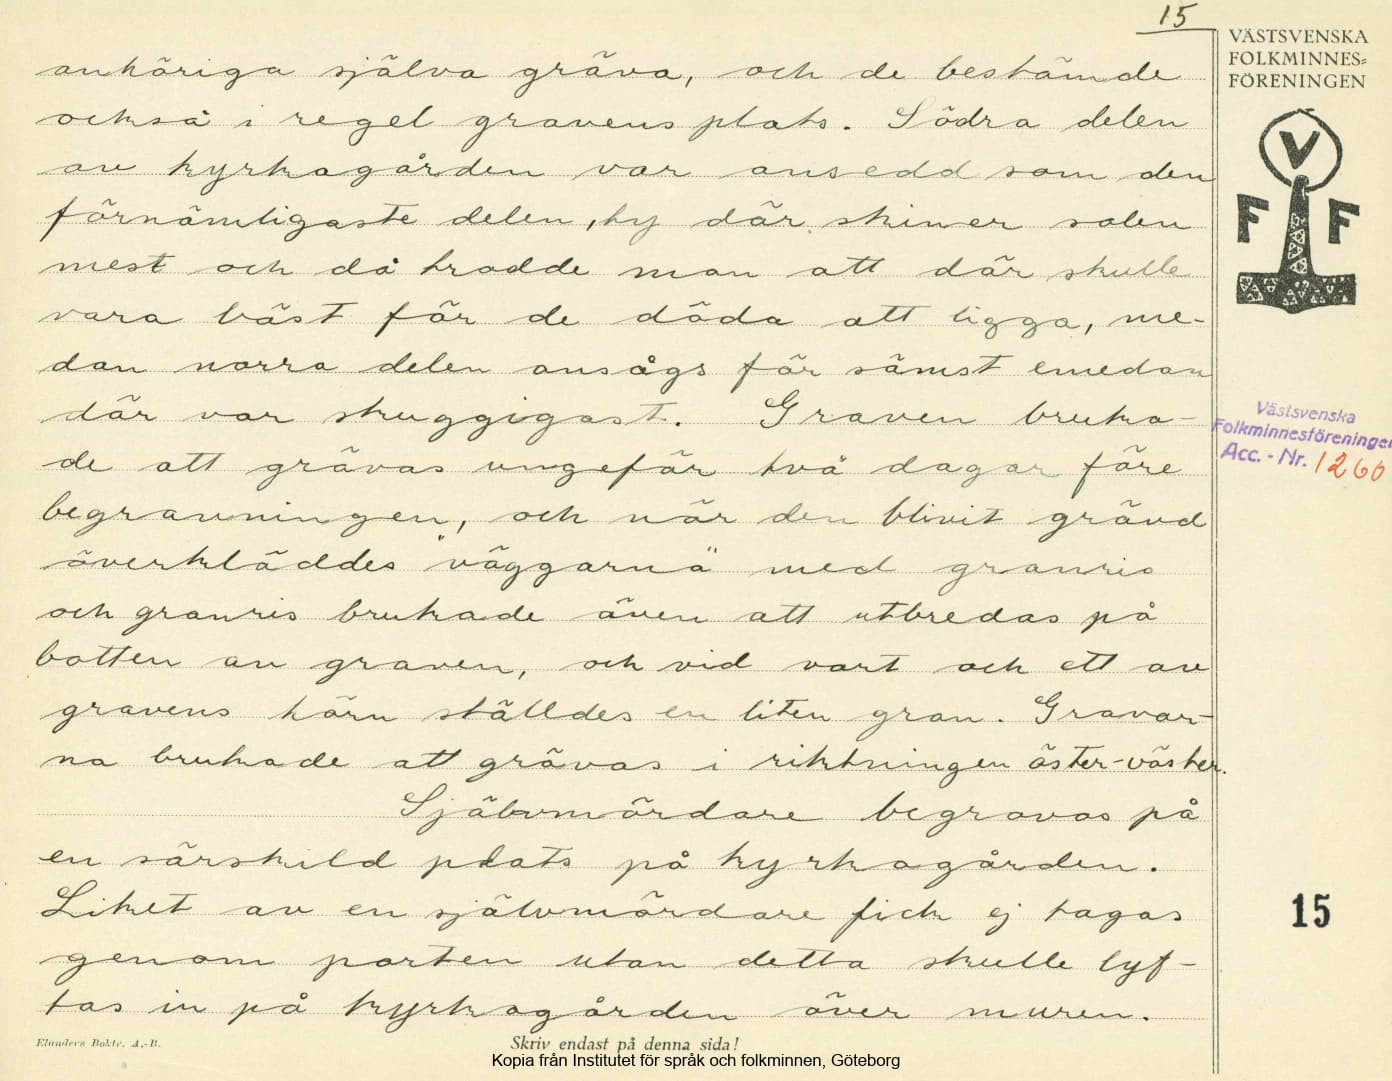 15
VÄSTSVENSKA
FOLKMINNES=
FÖRENINGEN
V
F F
anhöriga själva gräva, och de bestämde
också i regel gravens plats. Södra delen
av kyrkogården var ansedd som den
förnämligaste delen, ty där skiner solen
mest och då trodde man att där skulle
vara bäst för de döda att ligga, me-
dan norra delen ansågs för sämst emedan
där var skuggigast. Graven bruka-
de att grävas ungefär två dagar före
begravningen, och när den blivit grävd
överkläddes "väggarna" med granris
och granris brukade även att utbredas på
botten av graven, och vid vart och ett av
gravens hörn ställdes en liten gran. Gravar-
na brukade att grävas i riktningen öster-väster.
Självmördare begravas på
en särskild plats på kyrkogården.
Liket av en självmördare fick ej tagas
genom porten utan detta skulle lyf-
tas in på kyrkogården över muren.
Västsvenska
Folkminnesföreningen
Acc. - Nr. 1260
15
Elanders Boktr. A.-B.
Skriv endast på denna sida!
Kopia från Institutet för språk och folkminnen, Göteborg